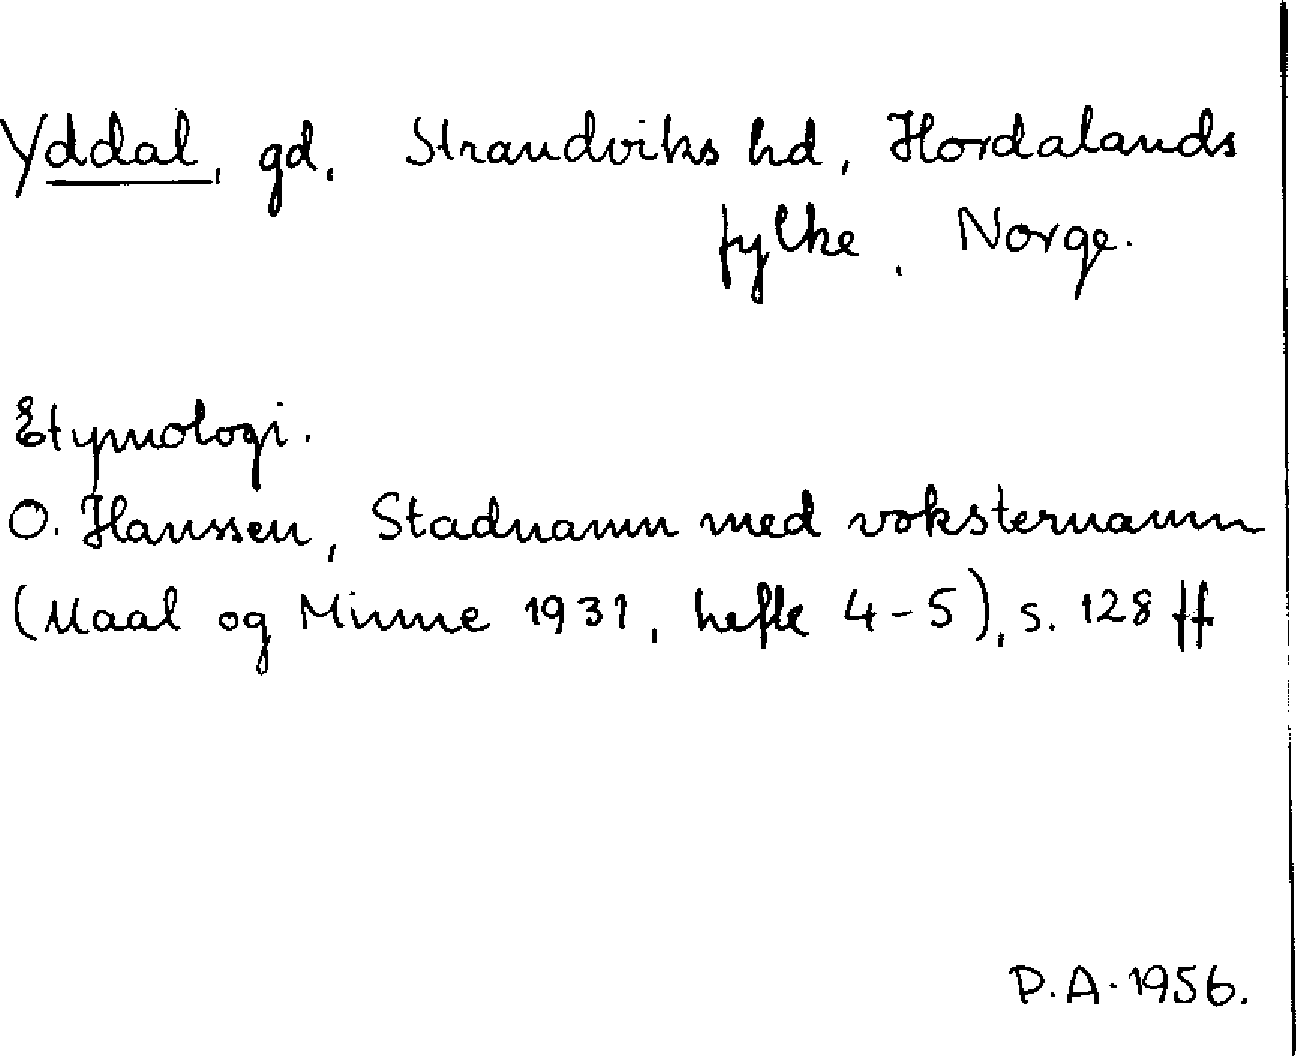 Yddal, gd, Strandviks hd, Hordalands
fylke, Norge.
Etymologi.
O. Hanssen, Stadnamn med voksternamn
(Maal og Minne 1931, hefte 4-5), s. 128 ff
P.A. 1956.